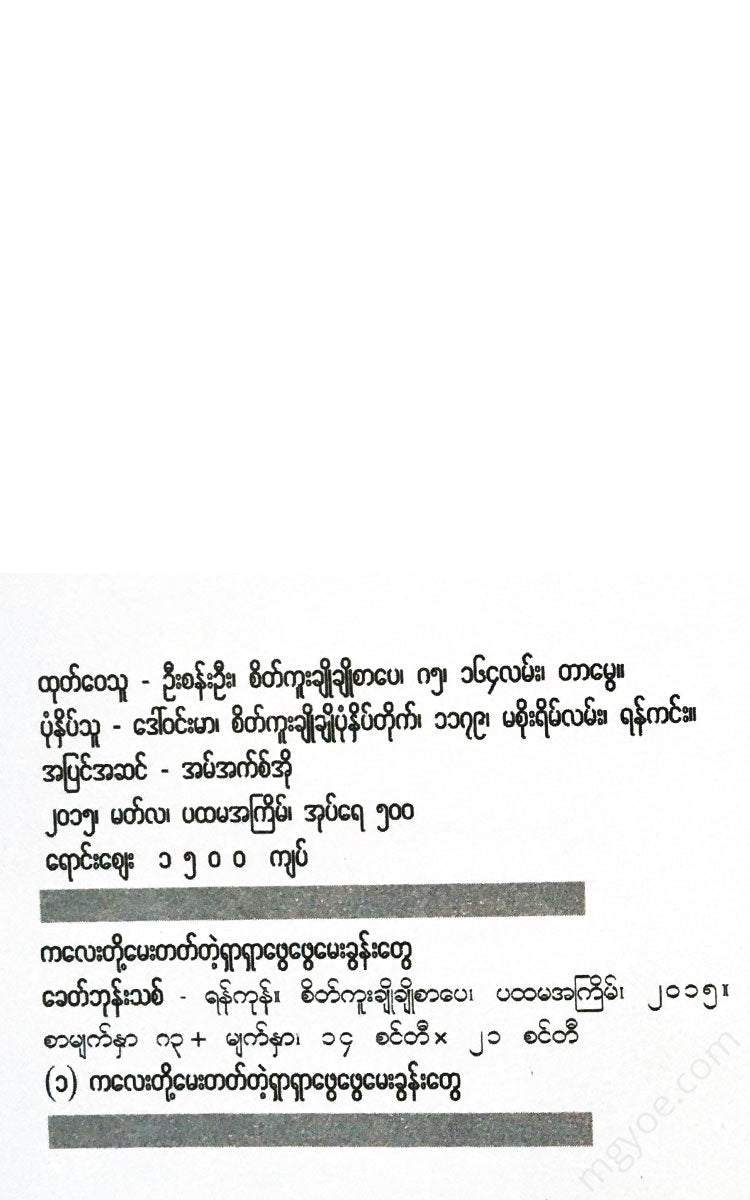 ထုတ်ဝေသူ - ဦးစန်းဦး၊ စိတ်ကူးချိုချိုစာပေ၊ ဂ၅၊ ၁၆၄လမ်း၊ တာမွေ။
ပုံနှိပ်သူ - ဒေါ်ဝင်းမာ၊ စိတ်ကူးချိုချိုပုံနှိပ်တိုက်၊ ၁၁၇၉၊ မစိုးရိမ်လမ်း၊ ရန်ကင်း။
အပြင်အဆင် - အမ်အက်စ်အို
၂၀၁၅၊ မတ်လ၊ ပထမအကြိမ်၊ အုပ်ရေ ၅၀၀
ရောင်းဈေး ၁၅၀၀ ကျပ်
ကလေးတို့မေးတတ်တဲ့ရှာရှာဖွေဖွေမေးခွန်းတွေ
ခေတ်ဘုန်းသစ် - ရန်ကုန်။ စိတ်ကူးချိုချိုစာပေ၊ ပထမအကြိမ်၊ ၂၀၁၅။
စာမျက်နှာ ဂ၃ + မျက်နှာ၊ ၁၄ စင်တီ × ၂၁ စင်တီ
(၁) ကလေးတို့မေးတတ်တဲ့ရှာရှာဖွေဖွေမေးခွန်းတွေ
mgyoe.com